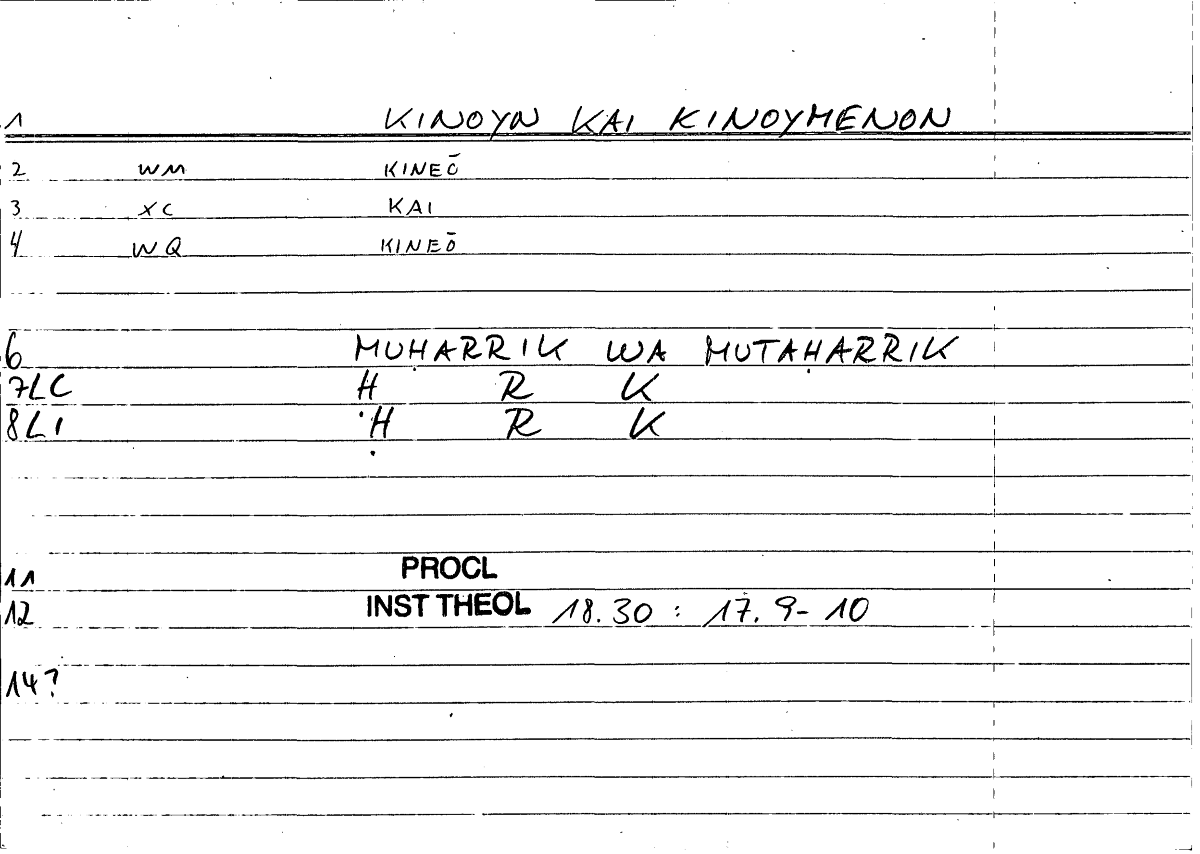 1 KINOYN KAI KINOYMENON
2 WM KINEŌ
3 XC KAI
4 WQ KINEŌ
6 MUḤARRIK WA MUTAḤARRIK
7LC Ḥ R K
8LI Ḥ R K
11 PROCL
12 INST THEOL 18.30 : 17.9-10
14?